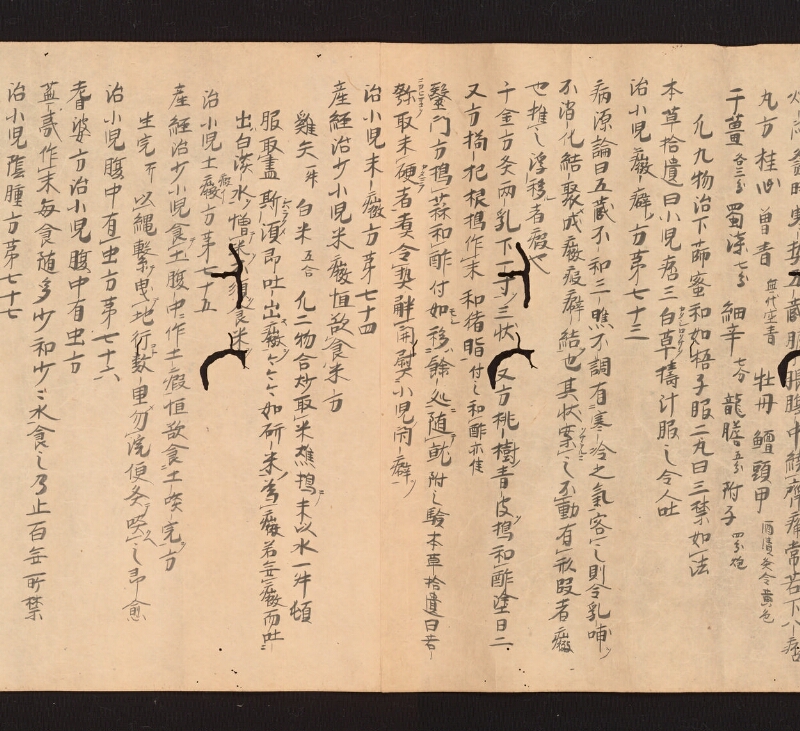 丸方桂心曽青牡丹鱓頭甲
干薑各三分蜀漆七分細辛七分龍膽五分附子四分炮
凡九物治下篩蜜和如梧子服二丸日三禁如法
本草拾遺曰小児痞三白草擣汁服之令人吐
治小児癥癖方第七十三
病源論曰五蔵不和三瞧不調有寒冷之氣客之則令乳哺
不消化結聚成癥瘕癖結也其状案之不動有形段者癥
也推之浮移者瘕也
千金方灸両乳下一寸三状又方桃樹青皮擣和酢塗日二
又方枸杞根擣作末和猪脂付之和酢亦佳
醫門方擣蒜和酢付如移餘処随就附之驗本草拾遺曰若
弥取末硬者煮令契小児閇癖
治小児末癥方第七十四
産経治少小児米癥恒欲食米方
雞矢一升白米五合凡二物合炒取米焦擣末以水一升頓
服取盡斯須即吐出癥如研米若無癥而吐
出白淡水憎米不須食米
治小児土癥方第七十五
産経治少小児食土腹中作土瘕恒欲食土噉完方
生完一斤以縄繫曳地行数里勿洗便灸噉之即愈
治小児腹中有虫方第七十六
耆婆方治小児腹中有虫方
作末毎食随多少和少々水食之乃止百無所禁
治小児陰腫方第七十七